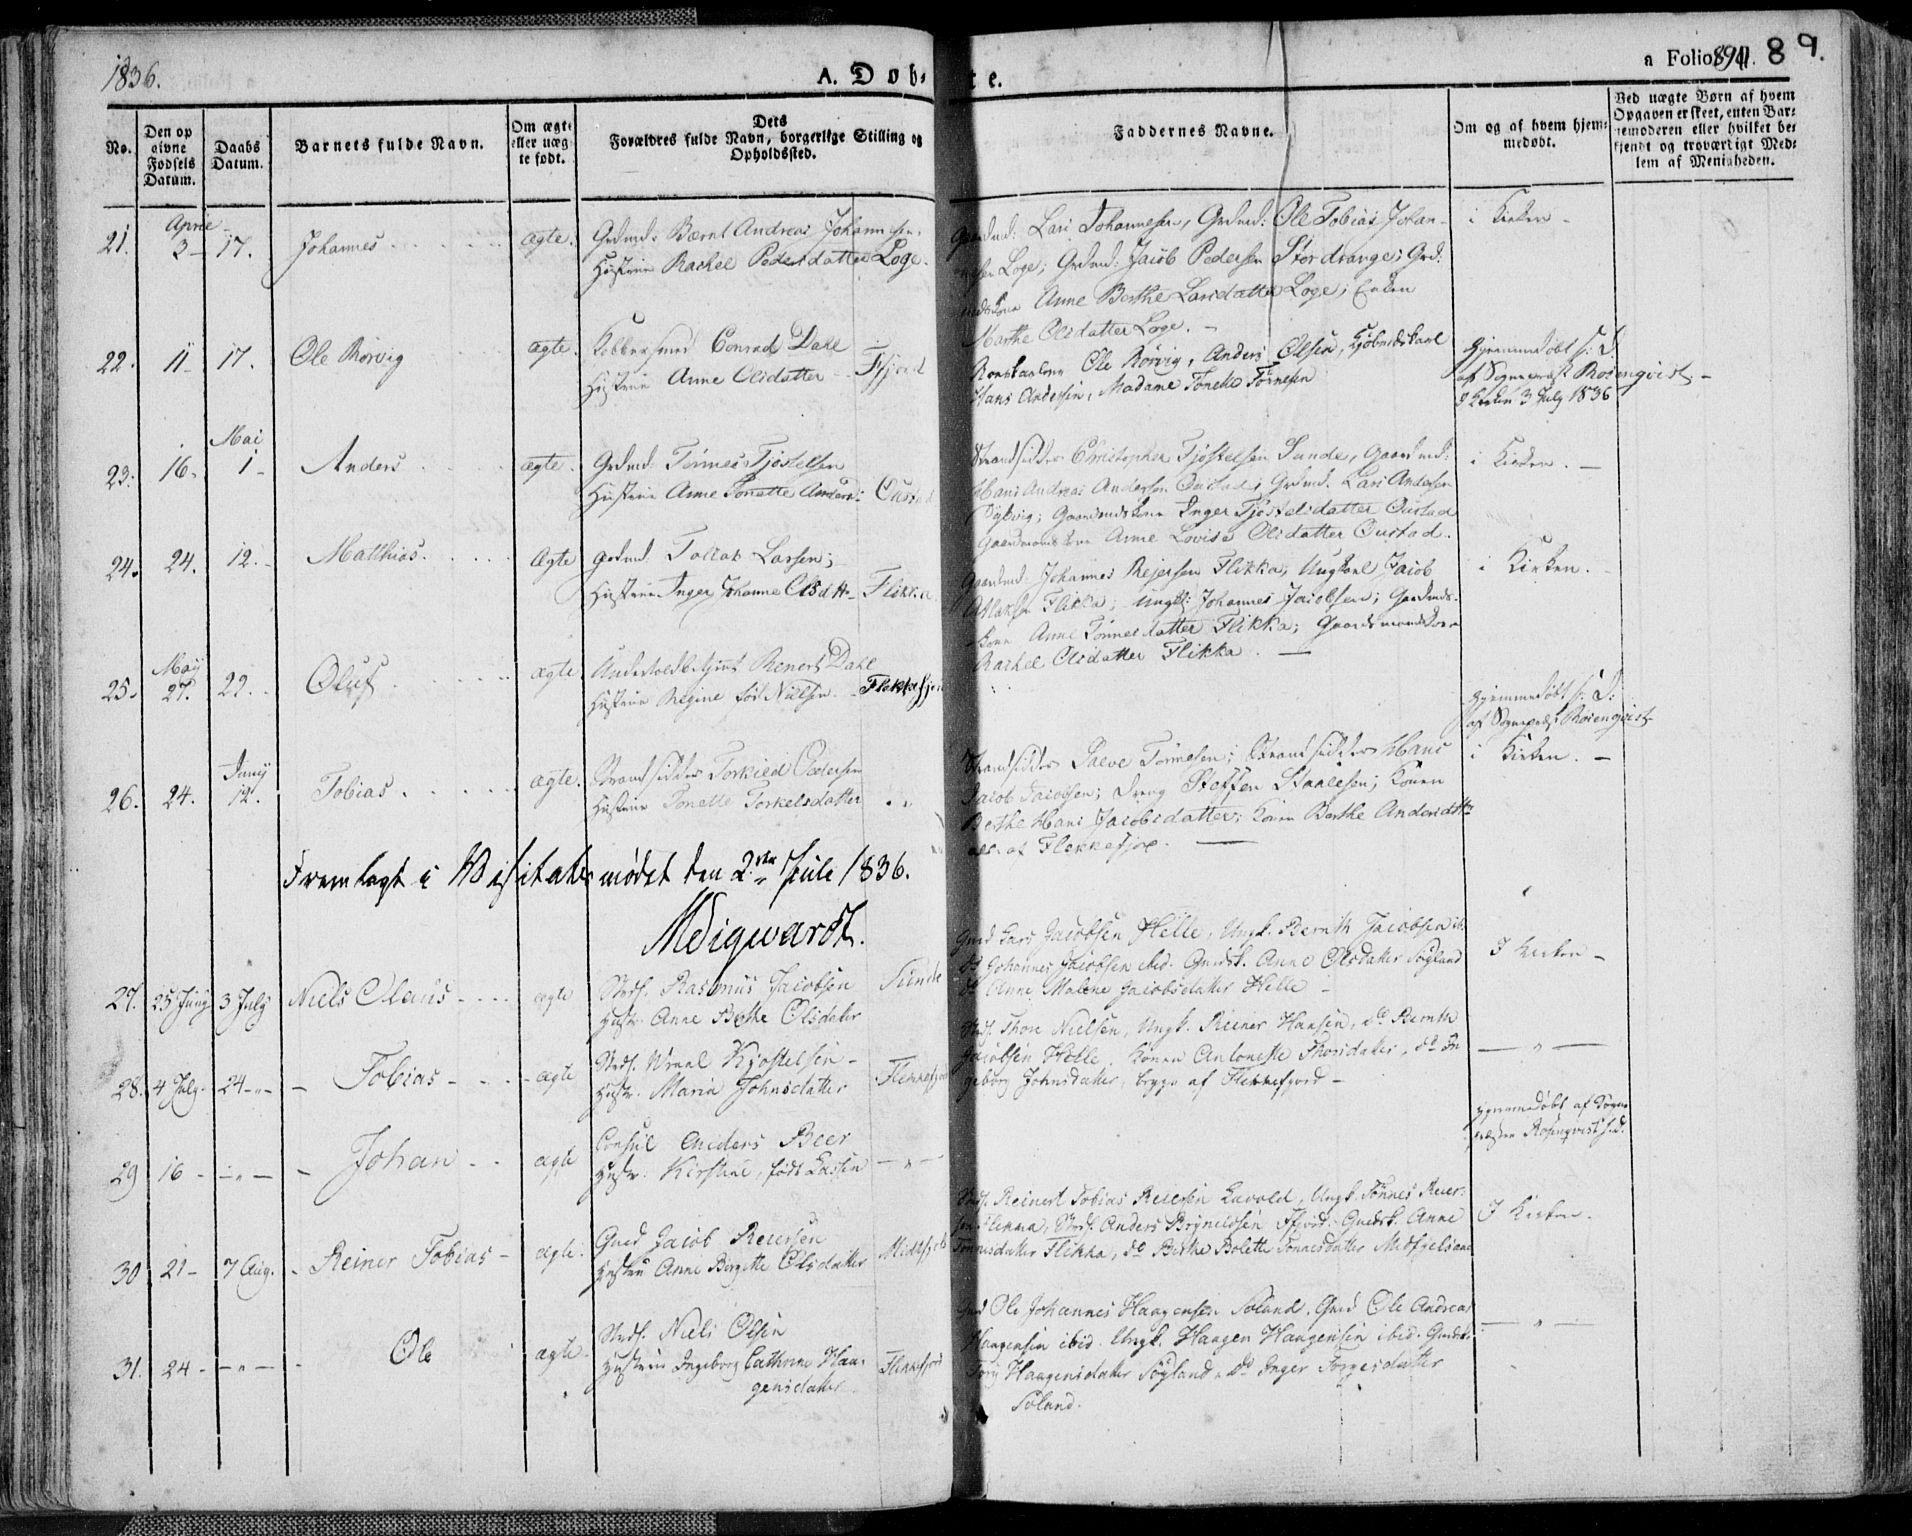 1836.
A. Døb-
te.
a Folio 89. 89.
No.
Den op
givne
Fødsels
Datum.
Daabs
Datum.
Barnets fulde Navn.
Om ægte
eller uæg-
te født.
Dets
Forældres fulde Navn, borgerlige Stilling og
Opholdssted.
Faddernes Navne.
Om og af hvem hjem-
medøbt.
Ved uægte Børn af hvem
Opgaven er skeet, enten Bar-
nemoderen eller hvilket be-
kjendt og troværdigt Med-
lem af Menigheden.
April
21. 3 - 17. Johannes ægte. Grdmd: Bærnt Andreas Johannsen,
Hustrue Rachel Pedersdatter Loge.
Gaardmd: Lars Johannesen, Grdmd: Ole Tobias Johan-
nesen Loge; Grdmd: Jacob Pedersen Stordrange; Grd:
Anne Berthe Larsdatter Loge; Enken
Marthe Olsdatter Loge. -
i Kirken -
22. 11 - 17. Ole Rørvig ægte. Kobbersmed Conrad Dahl
Hustrue Anne Olsdatter - Ffjord
Ole Rørvig, Anders Olsen, Kjøbmdskarl
Hans Andersen, Madame Tonette Tønnesen
Hjemmedøbt
af Sognepræst Rosenqvist -
I Kirken 3 July 1836
Mai
23. 16 - 1 - Anders ægte. Grdmd: Tønnes Tjøstelsen
Hustrue Anne Tonette Anders: Oustad
Strandsidder Christopher Tjøstelsen Sunde, Gaardmd:
Hans Andreas Andersen Oustad; Grdmd. Lars Andersen
Inger Tjøstelsdatter Oustad
Anne Lovise Olsdatter Oustad.
i Kirken. -
24. 24. 12. - Matthias. ægte Grdmd: Tollak Larsen;
Hustrue Inger Johanne Olsdtr - Flikka.
Gaardmd: Johannes Rejersen Flikka; Ungkarl Jacob
Atlaksen Flikka; Ungk: Johannes Jacobsen; Gaardmds-
kone Anne Tønnesdatter Flikka; Gaardmandskone
Rachel Olsdatter Flikka. -
i Kirken.
May
25. 27. 22. Oluf ægte Undertoldbetjent Renert Dahl
Hustrue Regine født Nielsen - Flekkefjord
Hjemmedøbt
af Sognepræst Rosenqvist
Juny
26. 24. 12. Tobias. ægte. Strandsidder Torkild Pedersen
Hustrue Tonette Torkelsdatter " "
Strandsidder Salve Tønnesen; Strandsidder Hans
Jacob Jacobsen; Dreng Steffen Staalesen; Konen
Berthe Hans Jacobsdatter; Konen Berthe Andersdtr
alle af Flekkefjor. -
i Kirken. -
Fremlagt i Visitatsmødet den 2den Juli 1836.
27. 25 Juny 3 July Niels Olaus - ægte Strds. Rasmus Jacobsen
Hustr. Anne Berthe Olsdatter
Sunde
Gmd Lars Jacobsen Helle, Ungk. Bernth Jacobsen ib.
do Johannes Jacobsen ibid. Gmdsk. Anne Olsdatter Søyland
do Anne Malene Jacobsdatter Helle -
I Kirken -
28. 4 July. 24 - " - - Tobias - ægte Strds. Wraal Kjøstelsen -
Hustr. Maria Johnsdatter Flekkefjord
Strds. Thore Nielsen, Ungk. Reiner Hansen, do Bernth
Jacobsen Helle. Konen Antonette Thorsdatter, do In
geborg Johnsdatter, begge af Flekkefjord -
- " -
29 16 - - " - - Johan - - ægte Consul Anders Beer
Hustr. Kirstine, født Lassen - " -
Hjemmedøbt af Sogne-
præsten Rosenqvist
30 21 - 7 Aug. - Reiner Tobias - ægte. Gmd Jacob Reiersen
Hustru Anne Birgitte Olsdatter
Strds. Reinert Tobias Reiersen Lavold, Ungk. Tønnes Reier-
sen Flikka, Strds. Anders Brynildsen Ffjord. Gmdsk. Anne
Tønnisdatter Flikka, do Berthe Bolette Tønnesdatter
I Kirken.
31. 24 - - " - - Ole ægte. Strds. Niels Olsen
Hustrue Ingeborg Cathrine Haa-
gensdatter. Flekkefjord
Gmd Ole Johannes Haagensen Søland, Gmd Ole Andreas
Haagensen ibid. Ungk. Haagen Haagensen ibid. Gmdsk.
Haagensdatter Søyland, do Inger Torgersdatter
Søland.
- " -